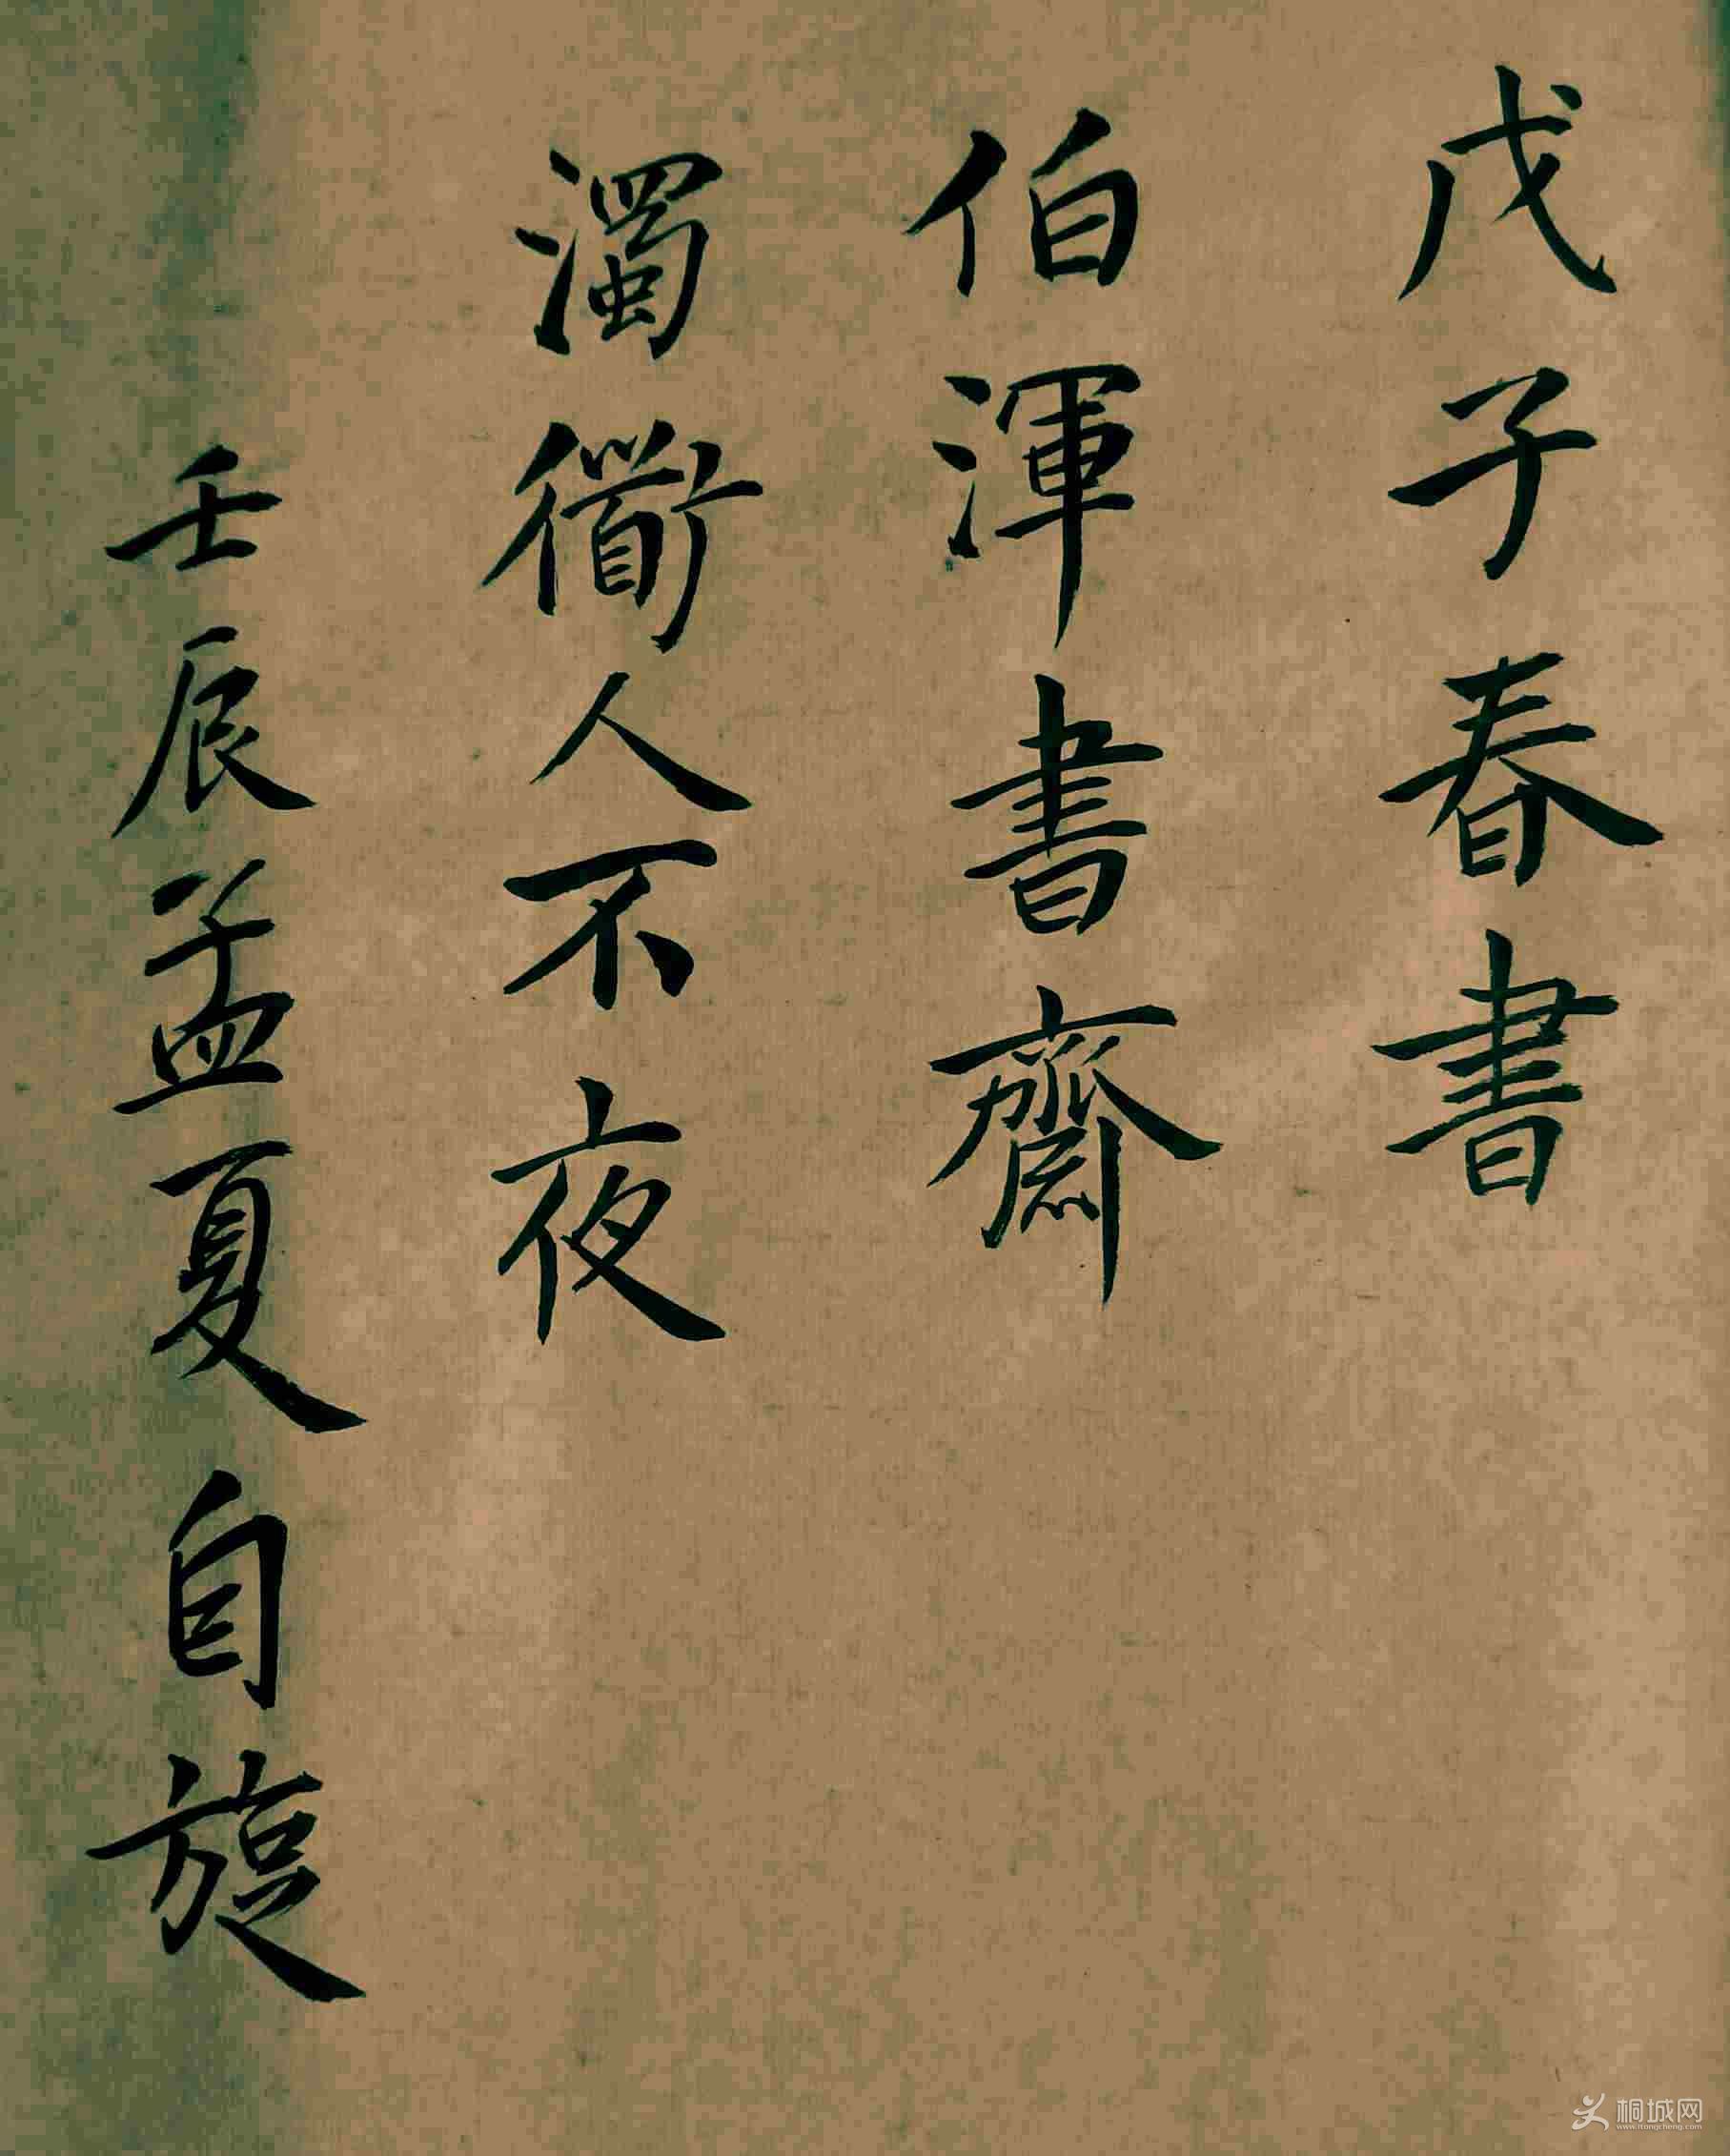 戊子春書
伯渾書齋
濁衜人不夜
壬辰孟夏自旋
桐城网
www.itongcheng.com